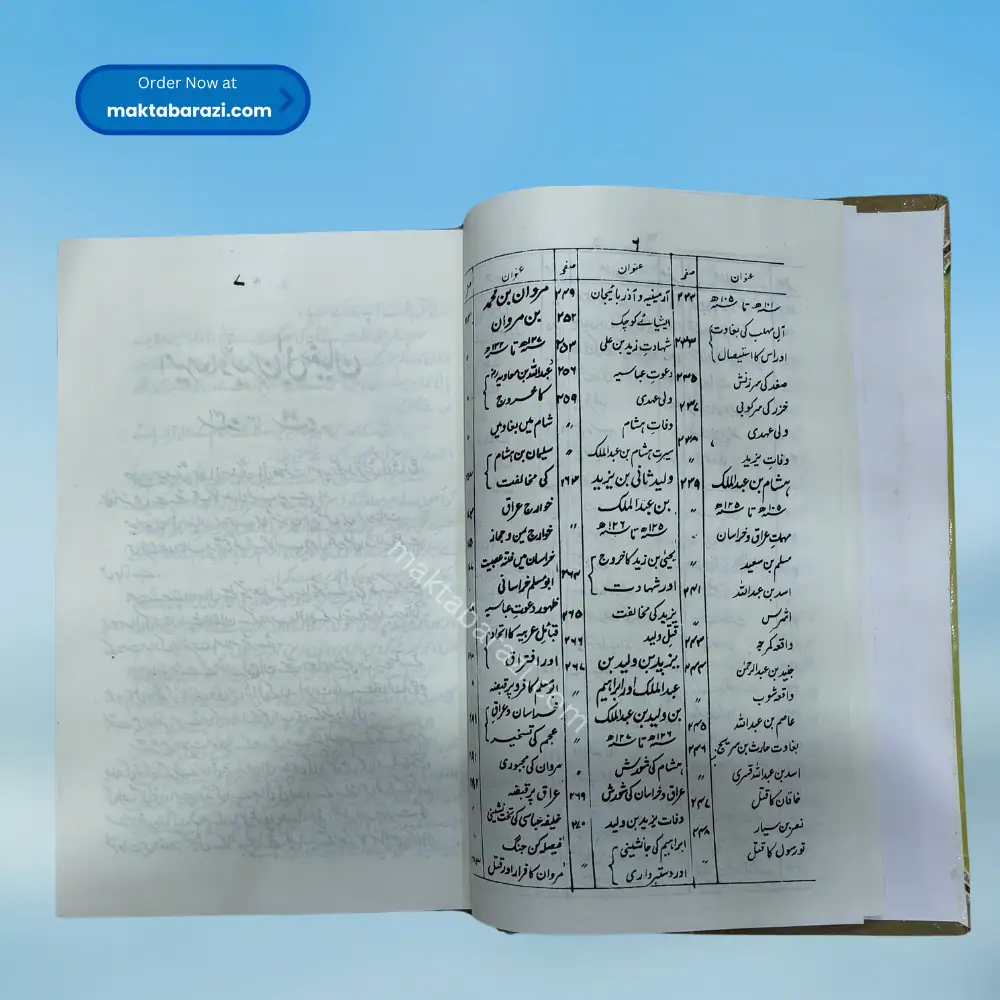 Order Now at
maktabarazi.com
۷
۶
عنوان
صفحہ
۱۰۱ھ تا ۱۰۵ھ
۲۳۲
آل مہلب کی بغاوت
اور اس کا استیصال
۲۳۳
صغد کی سرزنش
۲۳۵
خزر کی سرکوبی
۲۳۷
ولی عہدی
۲۳۸
وفات یزید
〃
ہشام بن عبدالملک
۲۳۹
۱۰۵ھ تا ۱۲۵ھ
〃
مہمات عراق و خراسان
مسلم بن سعید
〃
اسد بن عبداللہ
۲۴۱
اشرس
〃
واقعہ کمرجہ
۲۴۳
جنید بن عبدالرحمٰن
۲۴۴
واقعہ شوب
〃
عاصم بن عبداللہ
۲۴۵
بغاوت حارث بن سریج
۲۴۶
اسد بن عبداللہ قسری
〃
خاقان کا قتل
۲۴۷
نصر بن سیار
۲۴۸
کورصول کا قتل
〃
عنوان
صفحہ
آرمینیہ و آذربائیجان
۲۴۹
ایشیائے کوچک
۲۵۲
شہادتِ زید بن علی
۲۵۳
دعوتِ عباسیہ
۲۵۶
ولی عہدی
۲۵۹
وفات ہشام
〃
سیرت ہشام بن عبدالملک
ولید ثانی بن یزید
۲۶۳
بن عبدالملک
۱۲۵ھ تا ۱۲۶ھ
〃
یحییٰ بن زید کا خروج
اور شہادت
یزید کی مخالفت
۲۶۵
قتل ولید
۲۶۶
یزید بن ولید بن
۲۶۷
عبدالملک اور ابراہیم
〃
بن ولید بن عبدالملک
۱۲۶ھ تا ۱۲۷ھ
〃
ہشام کی شورش
عراق و خراسان کی شورش
۲۶۹
وفات یزید بن ولید
۲۷۰
ابراہیم کی جانشینی
اور دستبرداری
〃
عنوان
مروان بن محمد
بن مروان
۱۲۷ھ تا ۱۳۲ھ
عبداللہ بن معاویہ
کا خروج
شام میں بغاوتیں
سلیمان بن ہشام
کی مخالفت
خوارج عراق
خوارج یمن و حجاز
خراسان میں فتنہ عصبیت
ابو مسلم خراسانی
ظہور دعوتِ عباسیہ
قبائل عربیہ کا اتحاد
اور افتراق
ابو مسلم کا مرو پر قبضہ
خراسان و عراق
عجم کی تسخیر
مروان کی مجبوری
عراق پر قبضہ
خلیفہ عباسی کی تخت نشینی
فیصلہ کن جنگ
مروان کا فرار اور قتل
maktabarazi.com